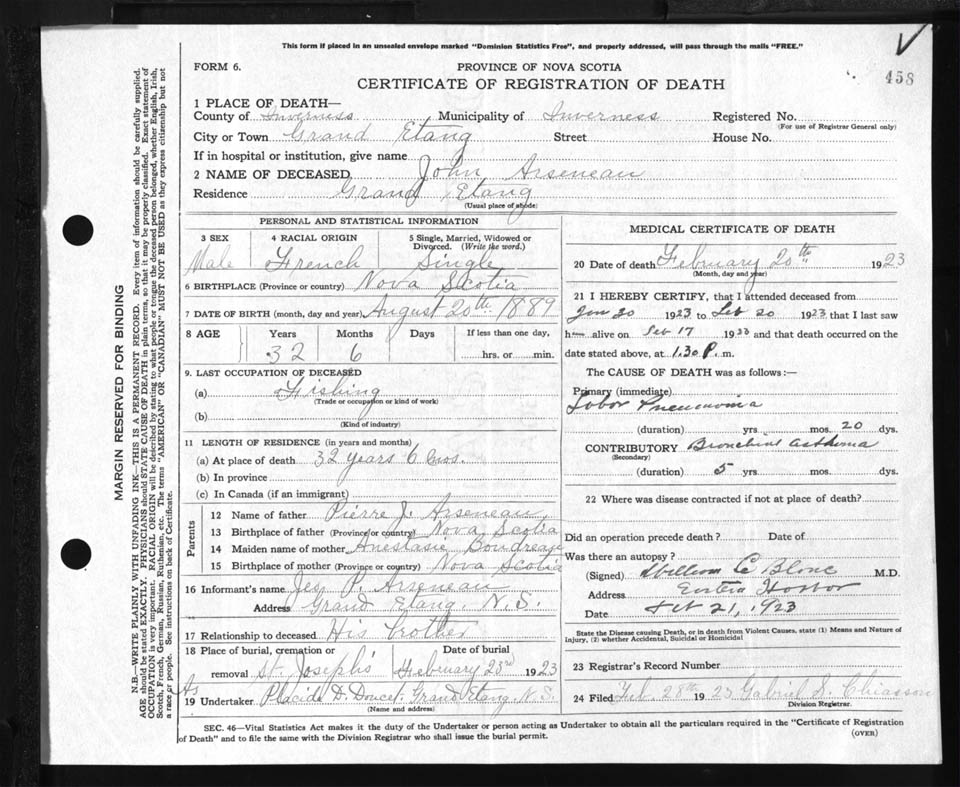 This form if placed in an unsealed envelope marked "Dominion Statistics Free", and properly addressed, will pass through the mails "FREE."
458
FORM 6.
PROVINCE OF NOVA SCOTIA
CERTIFICATE OF REGISTRATION OF DEATH
1 PLACE OF DEATH—
County of Inverness Municipality of Inverness Registered No.
(For use of Registrar General only)
City or Town Grand Etang Street House No.
If in hospital or institution, give name
2 NAME OF DECEASED John Arseneau
Residence Grand Etang
(Usual place of abode)
PERSONAL AND STATISTICAL INFORMATION
3 SEX 4 RACIAL ORIGIN 5 Single, Married, Widowed or Divorced. (Write the word.)
Male French Single
6 BIRTHPLACE (Province or country) Nova Scotia
7 DATE OF BIRTH (month, day and year) August 20th 1889
8 AGE Years Months Days If less than one day,
32 6 hrs. or min.
9. LAST OCCUPATION OF DECEASED
(a) Fishing
(Trade or occupation or kind of work)
(b)
(Kind of industry)
11 LENGTH OF RESIDENCE (in years and months)
(a) At place of death 32 years 6 mos.
(b) In province
(c) In Canada (if an immigrant)
Parents
12 Name of father Pierre J. Arseneau
13 Birthplace of father (Province or country) Nova Scotia
14 Maiden name of mother Anestasie Boudreau
15 Birthplace of mother (Province or country) Nova Scotia
16 Informant's name P. Arseneau
Address Grand Etang, N.S.
17 Relationship to deceased His brother
18 Place of burial, cremation or removal St. Joseph's Date of burial February 23rd 1923
As
19 Undertaker Placide D. Doucet. Grand Etang, N.S.
(Name and address)
MEDICAL CERTIFICATE OF DEATH
20 Date of death February 20th 1923
(Month, day and year)
21 I HEREBY CERTIFY, that I attended deceased from
Jan 20 1923 to Feb 20 1923 that I last saw
h— alive on Feb 17 1923 and that death occurred on
date stated above, at 1.30 P. m.
The CAUSE OF DEATH was as follows:—
Primary (immediate)
Lobar Pneumonia
(duration) yrs. mos. 20 dys.
CONTRIBUTORY Bronchial asthma
(Secondary)
(duration) 5 yrs. mos. dys.
22 Where was disease contracted if not at place of death?
Did an operation precede death? Date of
Was there an autopsy?
(Signed) William M.D.
Address Harbor
Date Feb 21, 1923
State the Disease causing Death, or in death from Violent Causes, state (1) Means and Nature of
Injury, (2) whether Accidental, Suicidal or Homicidal
23 Registrar's Record Number
24 Filed Feb. 28th 1923 Gabriel S. Chiasson
Division Registrar.
SEC. 46—Vital Statistics Act makes it the duty of the Undertaker or person acting as Undertaker to obtain all the particulars required in the "Certificate of Registration
of Death" and to file the same with the Division Registrar who shall issue the burial permit.
(OVER)
MARGIN RESERVED FOR BINDING
N.B.—WRITE PLAINLY WITH UNFADING INK—THIS IS A PERMANENT RECORD. Every item of information should be carefully supplied.
AGE should be stated EXACTLY. PHYSICIANS should STATE CAUSE OF DEATH in plain terms, so that it may be properly classified. Exact statement of
OCCUPATION is very important. RACIAL ORIGIN will be described by stating to what people or tongue the deceased person belonged, whether English, Irish,
Scotch, French, German, Russian, Ruthenian, etc. The terms "AMERICAN" OR "CANADIAN" MUST NOT BE USED as they express citizenship but not
a race or people. See instructions on back of Certificate.